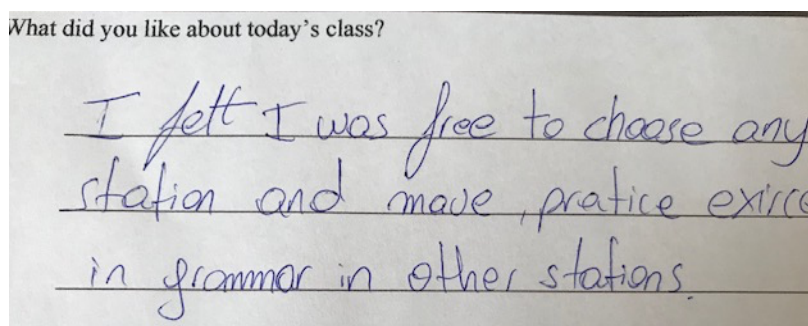 What did you like about today's class?
I felt I was free to choose any
station and move, pratice exirce
in grammar in other stations.